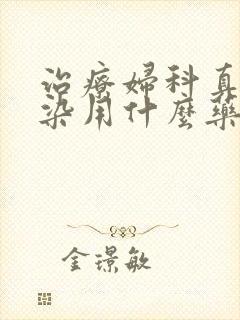 治療婦科真
染用什麼藥
金璟敏